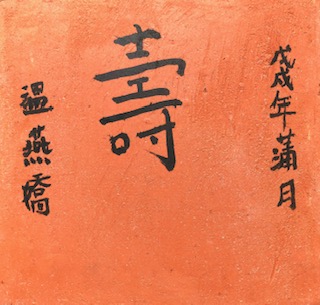 戊戌年蒲月
壽
溫燕嬌